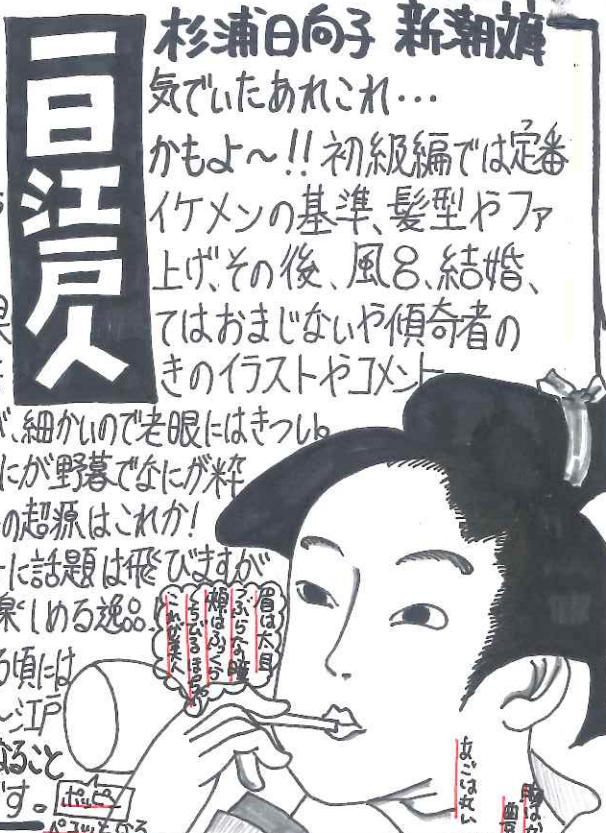 一日江戸人
杉浦日向子 新潮文庫
気でいたあれこれ…
かもよ～!! 初級編では定番
イケメンの基準、髪型やファ
上げ、その後、風呂、結婚、
てはおまじないや傾奇者の
きのイラストやコメント
が、細かいので老眼にはきつい。
にが野暮でなにが粋
の起源はこれか!
に話題は飛びますが
楽しめる逸品。
る頃には
江戸
なること
す。
眉は太目
つぶらな瞳
頬はふっくら
くちびるはぽちゃ
これが美人
ポッピン
あごは丸い
胸は